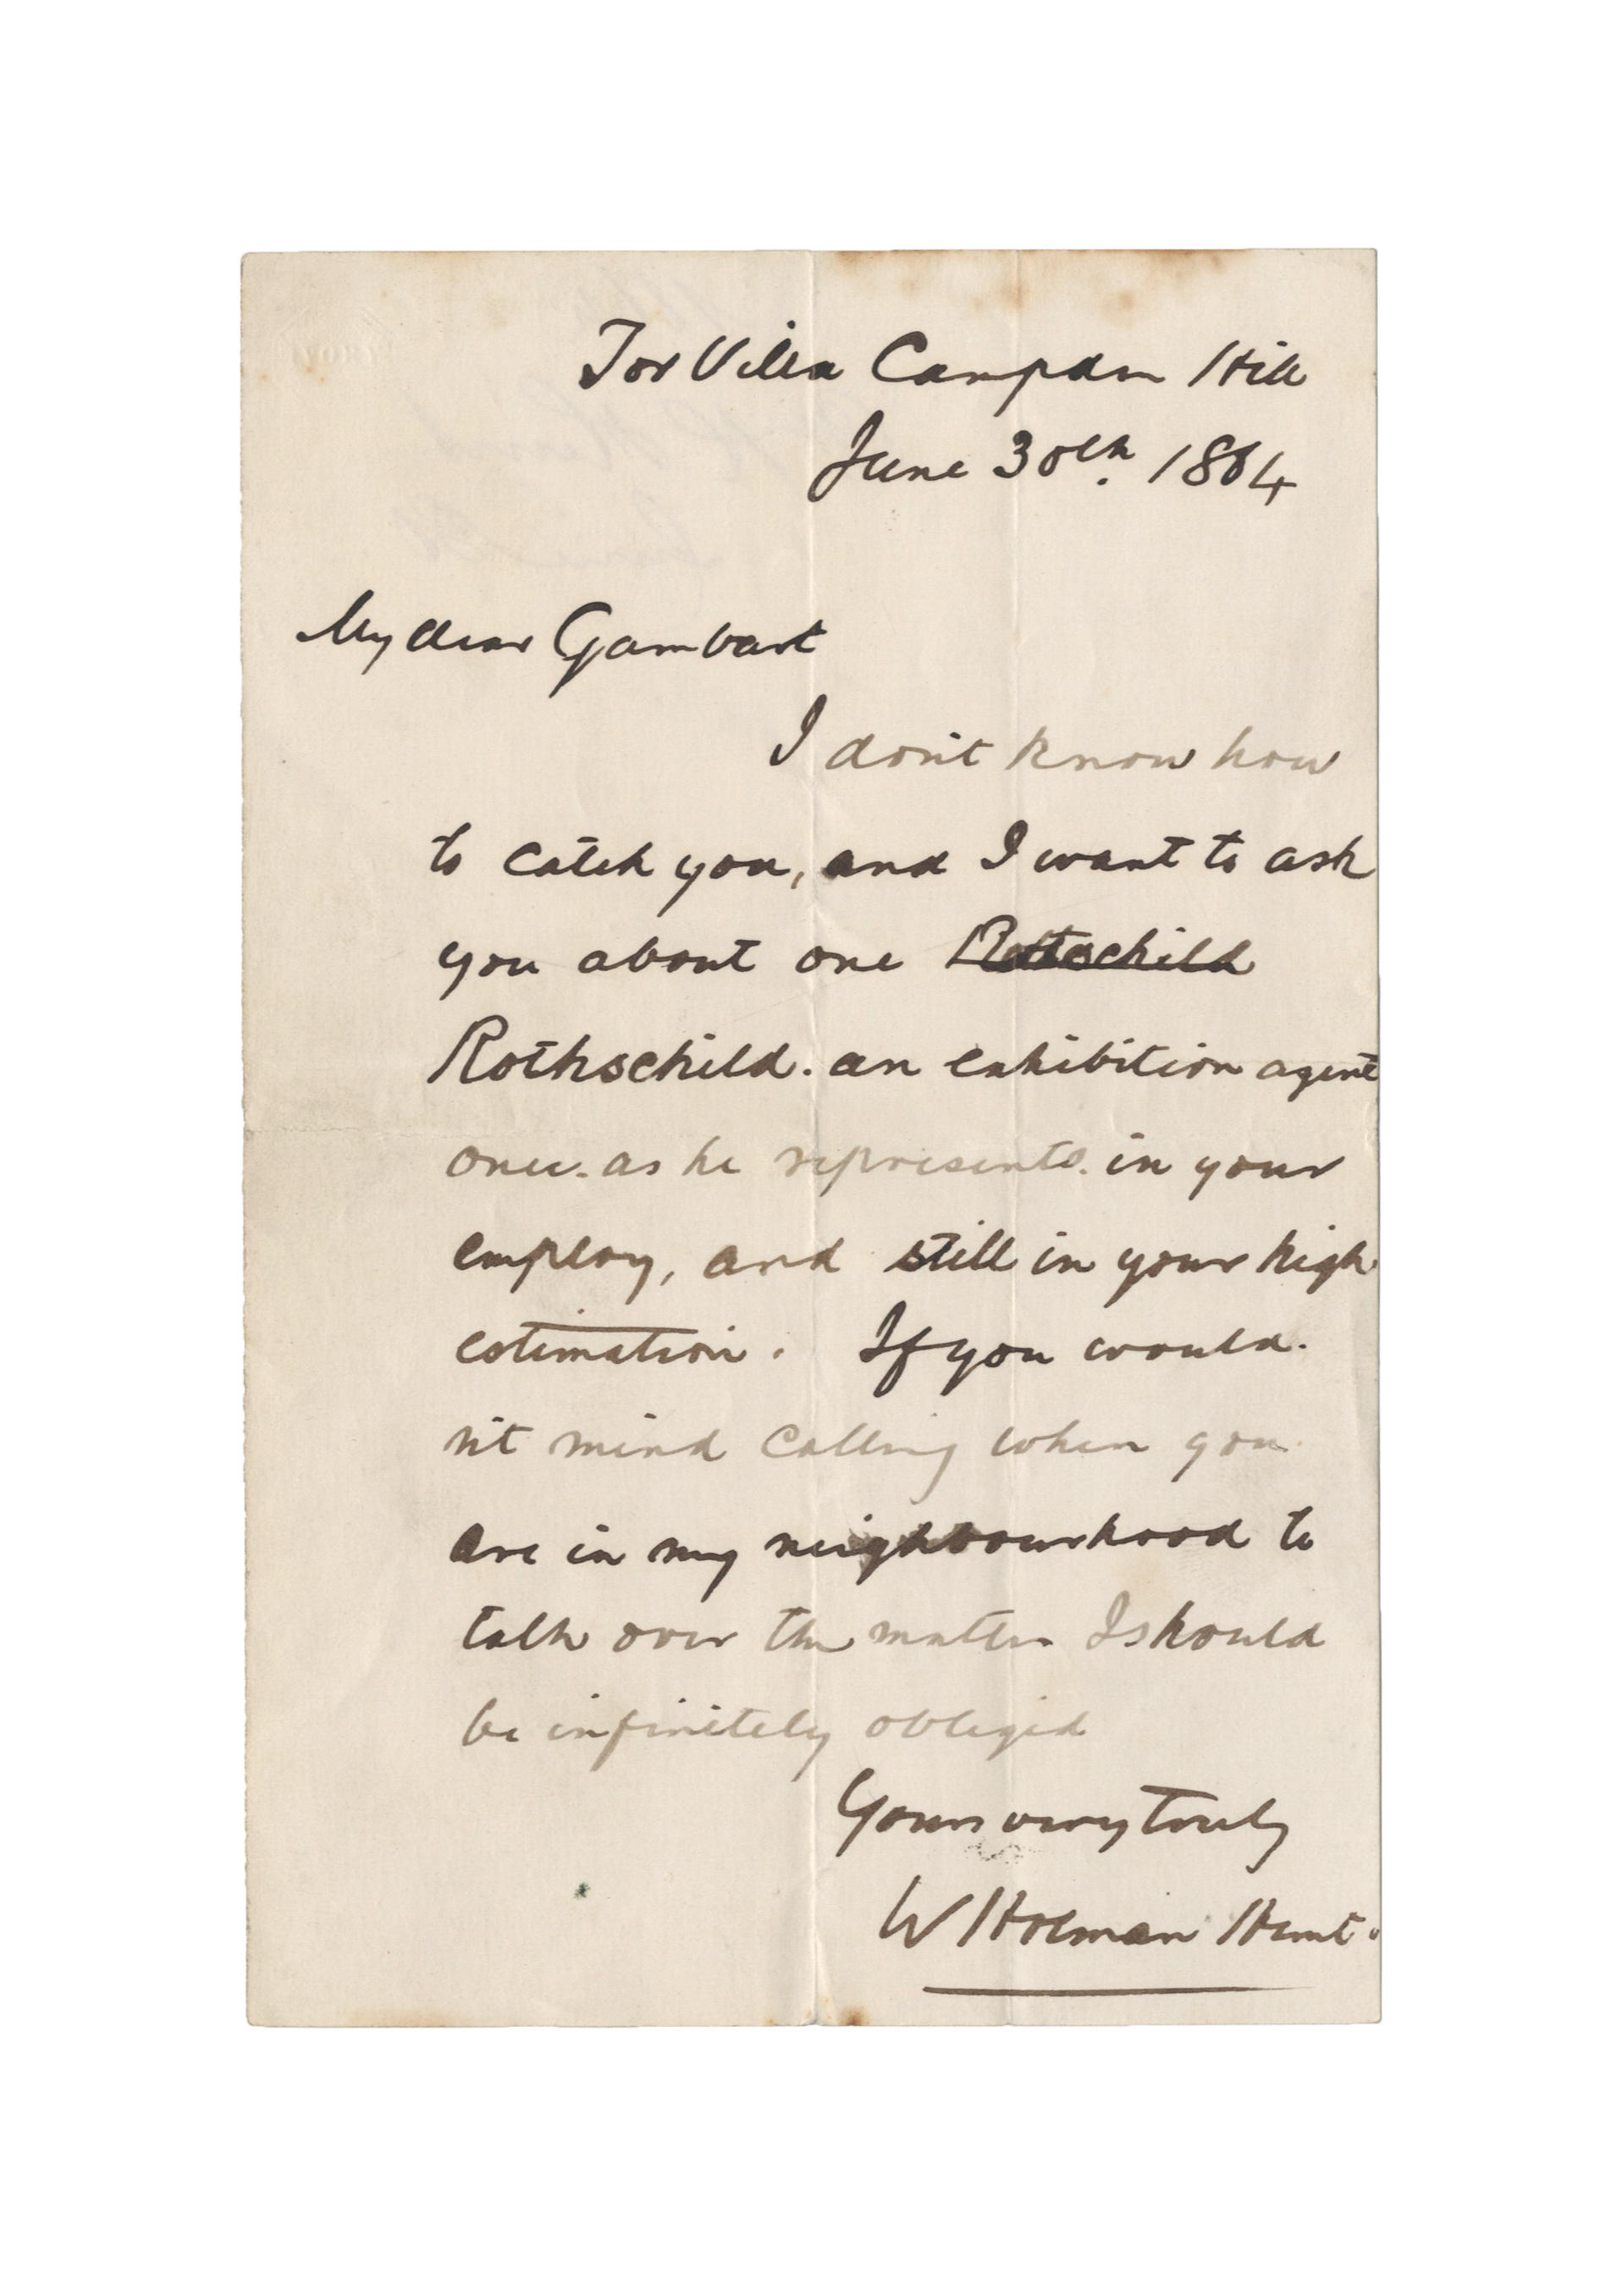 Tor Villa Campden Hill
June 30th. 1864
My dear Gambart
I don't know how
to catch you, and I want to ask
you about one
Rothschild. an exhibition agent
once. as he represents. in your
employ, and still in your high
estimation. If you would.
n't mind calling when you
are in my neighbourhood to
talk over the matter I should
be infinitely obliged
Yours very truly
W Holman Hunt.